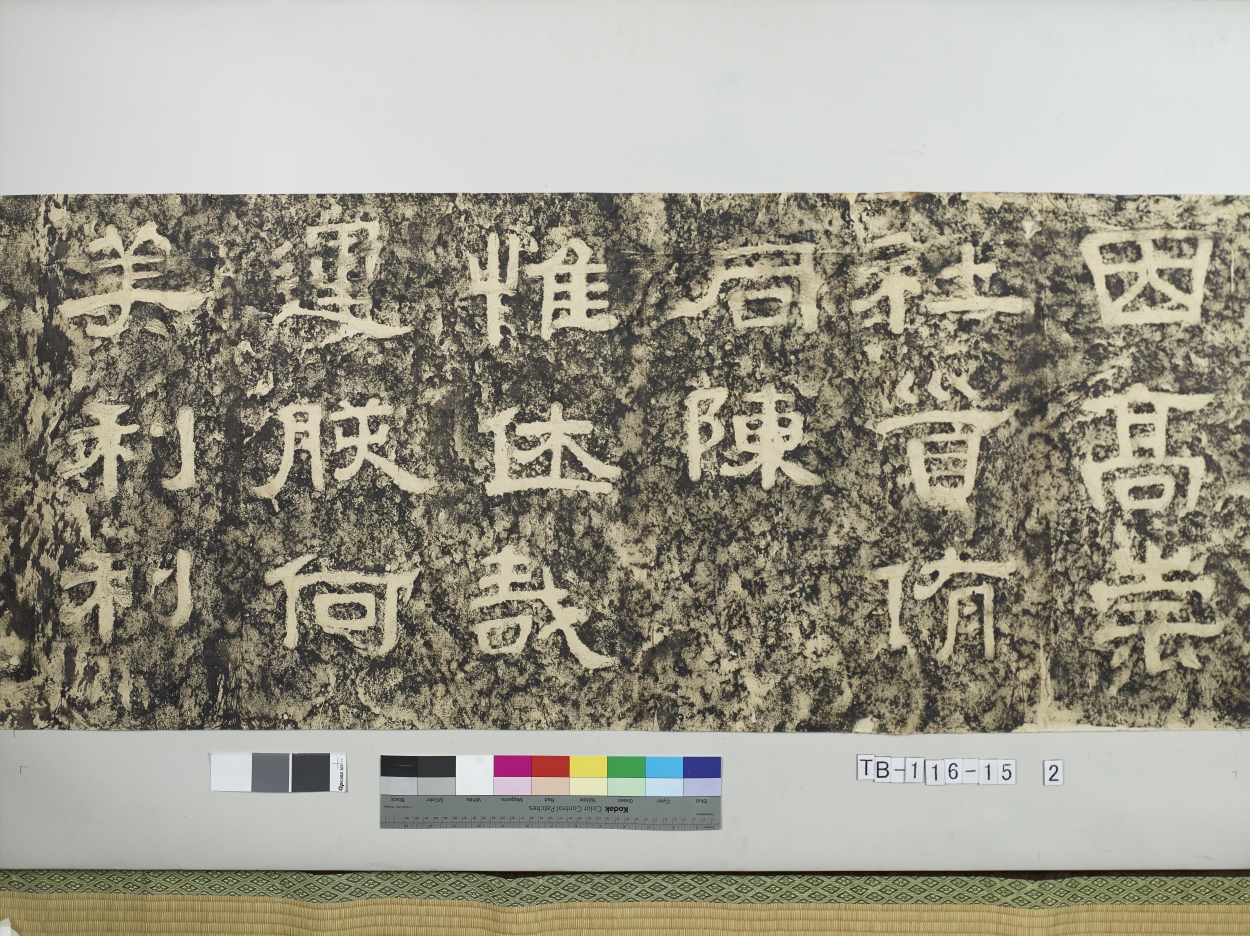 因高崇
社首侑
同陳
惟休哉
運朕何
美利利
TB-116-15 2
Kodak Color Control Patches
Blue Cyan Green Yellow Red Magenta White 3/Color Black